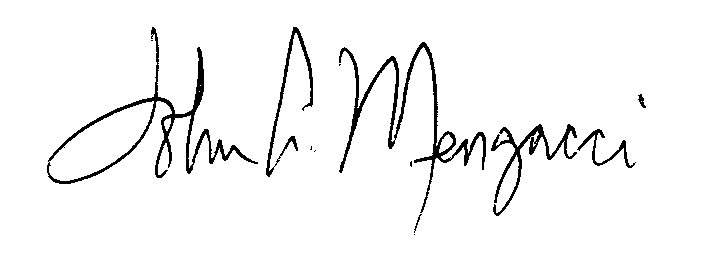 John A. Mengacci